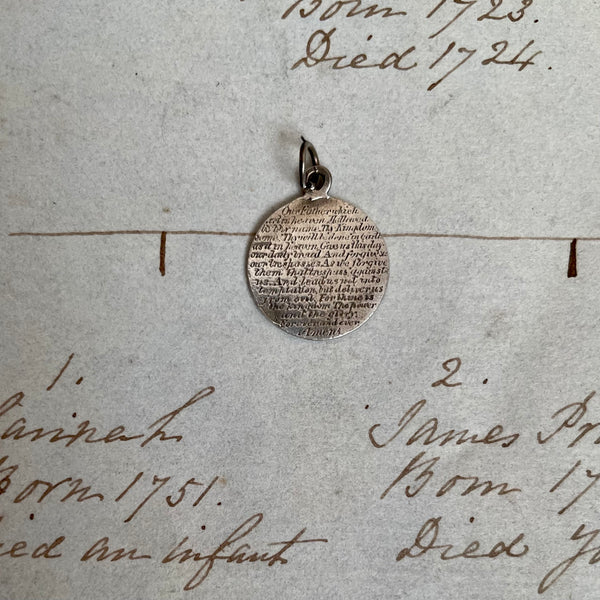 Born 1723.
Died 1724.
Our Father which
art in heaven Hallowed
be thy name. Thy Kingdom
come. Thy will be done in Earth
as it is in heaven. Give us this day
our daily bread And forgive
our trespasses. As we forgive
them that trespass against
us. And lead us not into
temptation, but deliver us
from evil. For thine is
the kingdom The power
and the glory
for ever and ever
Amen
1.
2.
Hannah
James Pr
Born 1751.
Born 17
Died an infant
Died